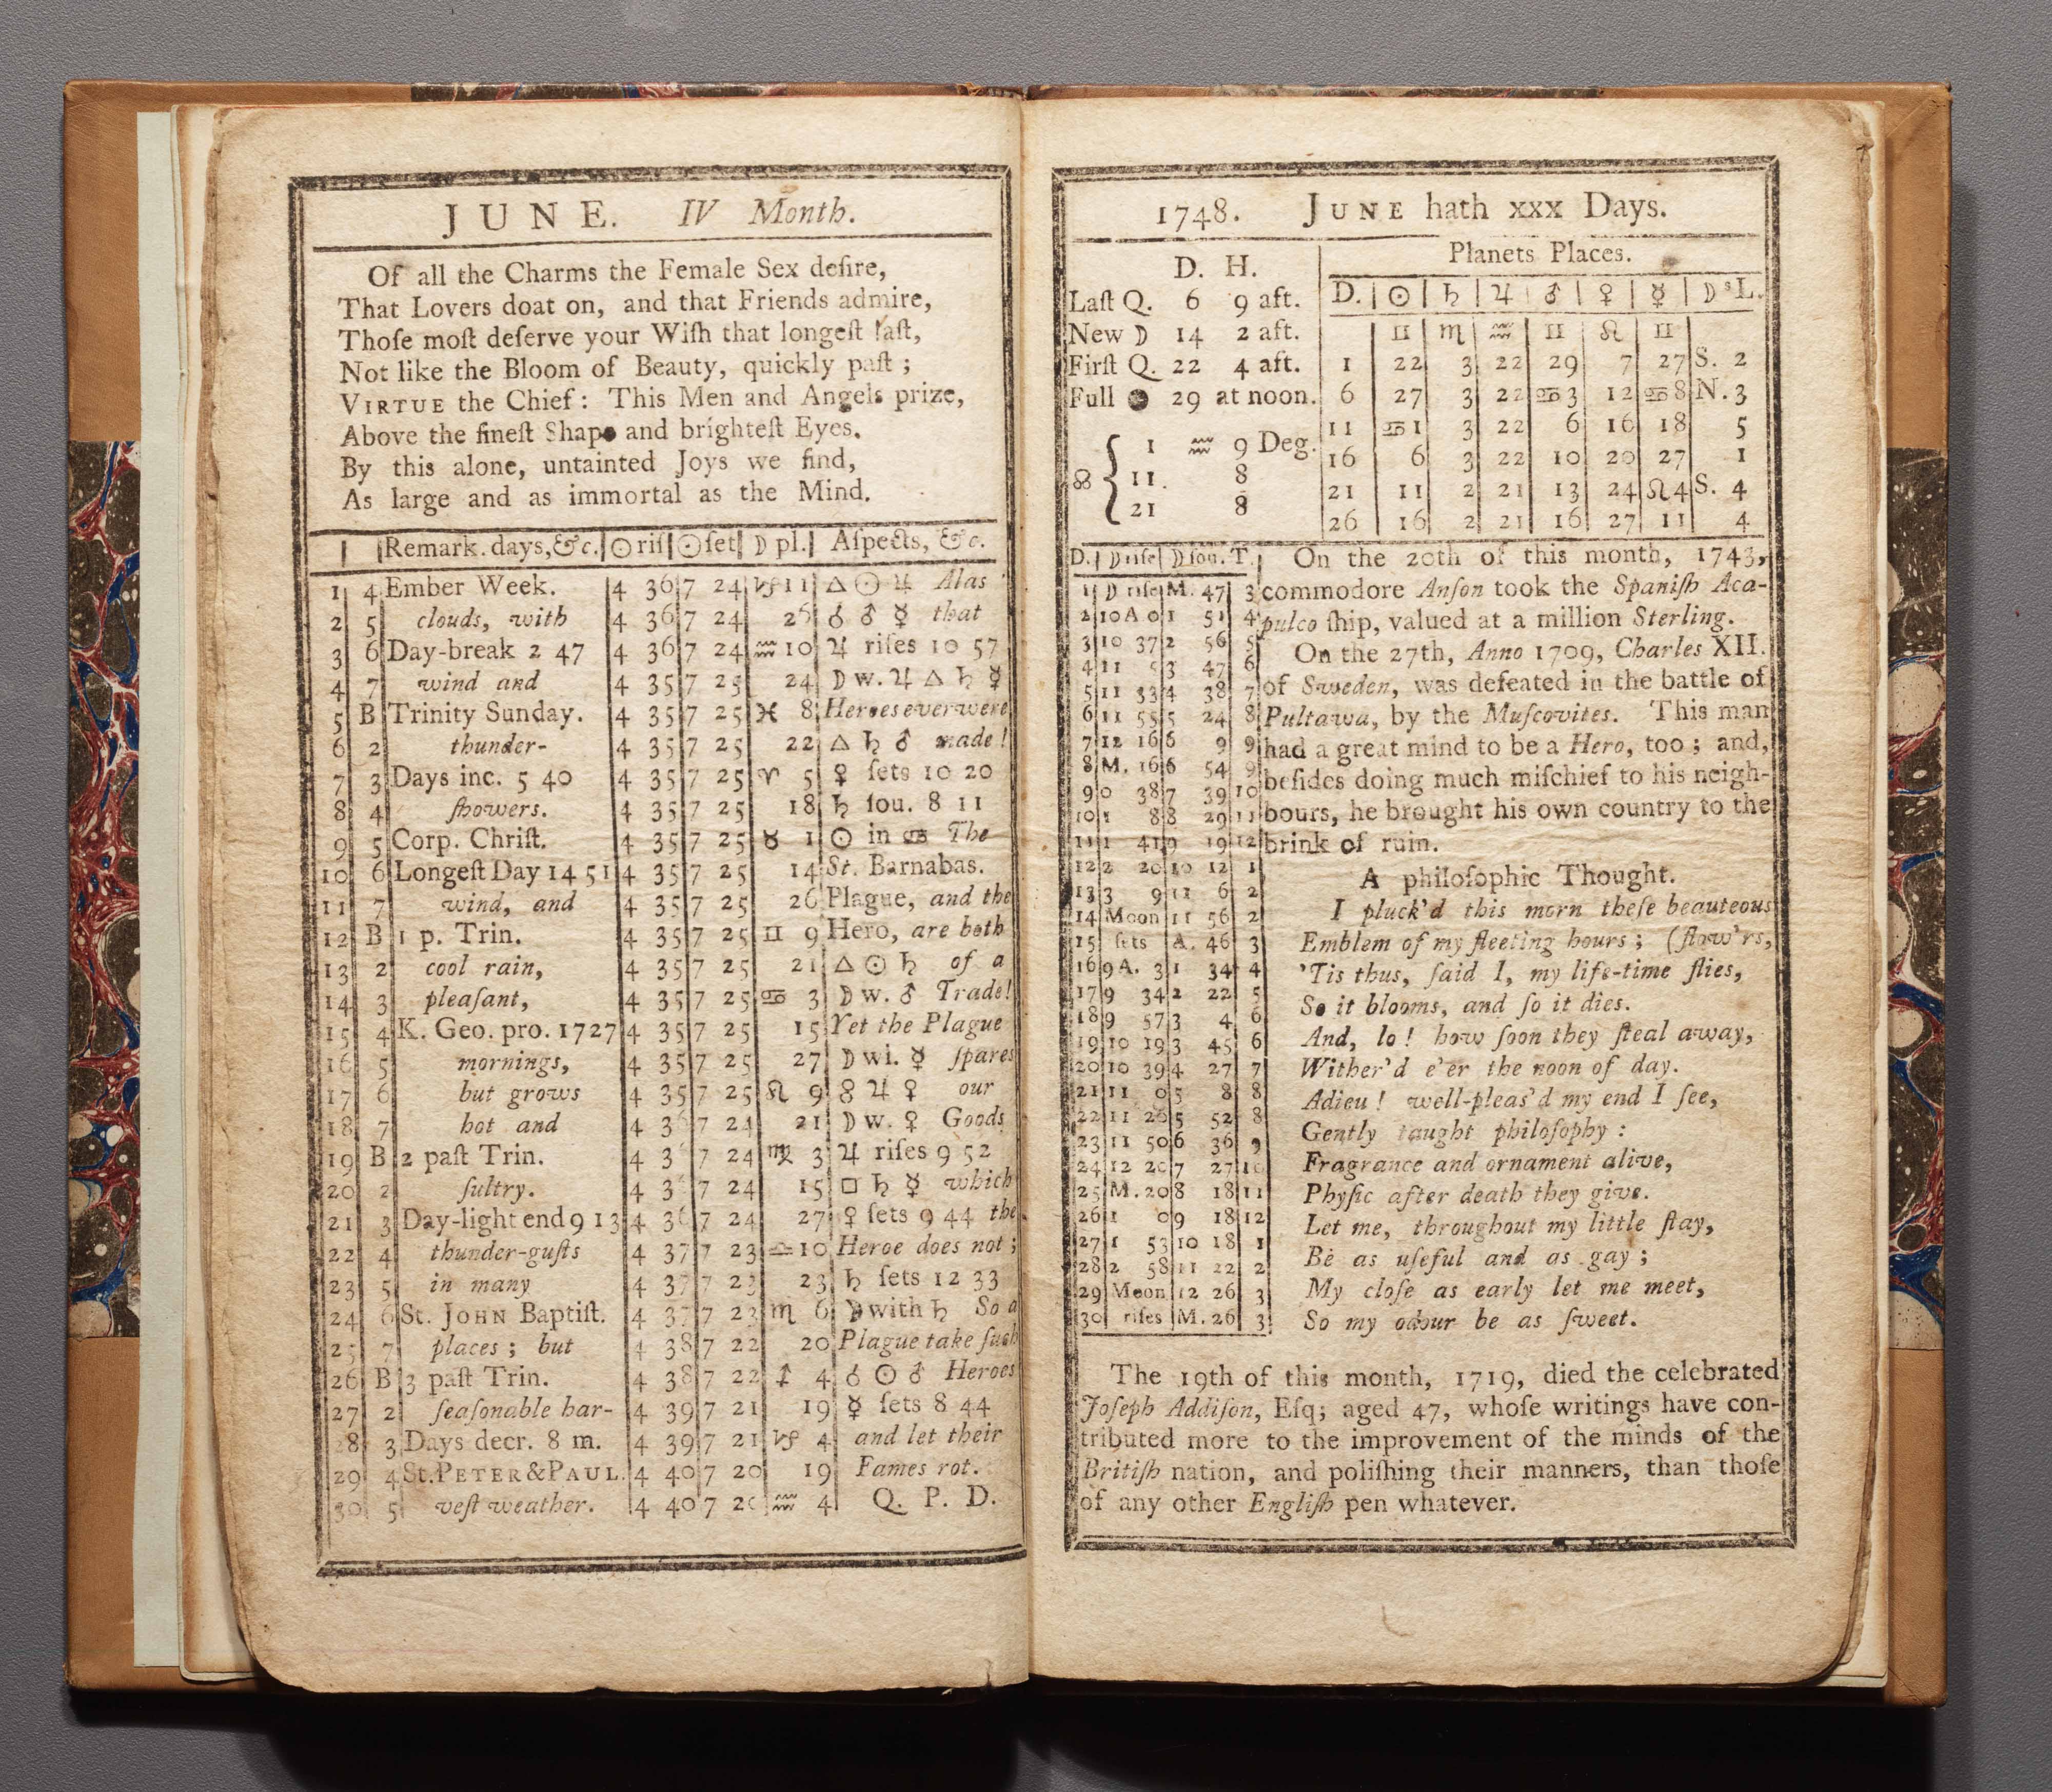 JUNE. IV Month.
Of all the Charms the Female Sex deſire,
That Lovers doat on, and that Friends admire,
Thoſe moſt deſerve your Wiſh that longeſt laſt,
Not like the Bloom of Beauty, quickly paſt ;
VIRTUE the Chief : This Men and Angels prize,
Above the fineſt Shape and brighteſt Eyes.
By this alone, untainted Joys we find,
As large and as immortal as the Mind.
Remark. days, &c. ☉ riſ ☉ ſet ☽ pl. Aſpects, &c.
1 4 Ember Week. 4 36 7 24 ♑ 11 △ ☉ ♃ Alas
2 5 clouds, with 4 36 7 24 26 ☌ ♂ ☿ that
3 6 Day-break 2 47 4 36 7 24 ♒ 10 ♃ riſes 10 57
4 7 wind and 4 35 7 25 24 ☽ w. ♃ △ ♄ ☿
5 B Trinity Sunday. 4 35 7 25 ♓ 8 Heroes ever were
6 2 thunder- 4 35 7 25 22 △ ♄ ♂ made !
7 3 Days inc. 5 40 4 35 7 25 ♈ 5 ♀ ſets 10 20
8 4 ſhowers. 4 35 7 25 18 ♄ ſou. 8 11
9 5 Corp. Chriſt. 4 35 7 25 ♉ 1 ☉ in ♋ The
10 6 Longeſt Day 14 51 4 35 7 25 14 St. Barnabas.
11 7 wind, and 4 35 7 25 26 Plague, and the
12 B 1 p. Trin. 4 35 7 25 ♊ 9 Hero, are both
13 2 cool rain, 4 35 7 25 21 △ ☉ ♄ of a
14 3 pleaſant, 4 35 7 25 ♋ 3 ☽ w. ♂ Trade!
15 4 K. Geo. pro. 1727 4 35 7 25 15 Yet the Plague
16 5 mornings, 4 35 7 25 27 ☽ wi. ☿ ſpares
17 6 but grows 4 35 7 25 ♌ 9 ☍ ♃ ♀ our
18 7 hot and 4 3 7 24 21 ☽ w. ♀ Goods
19 B 2 paſt Trin. 4 3 7 24 ♍ 3 ♃ riſes 9 52
20 2 ſultry. 4 3 7 24 15 □ ♄ ☿ which
21 3 Day-light end 9 13 4 36 7 24 27 ♀ ſets 9 44 the
22 4 thunder-guſts 4 37 7 23 ♎ 10 Heroe does not ;
23 5 in many 4 37 7 23 23 ♄ ſets 12 33
24 6 St. JOHN Baptiſt. 4 37 7 23 ♏ 6 ☽ with ♄ So a
25 7 places ; but 4 38 7 22 20 Plague take ſuch
26 B 3 paſt Trin. 4 38 7 22 ♐ 4 ☌ ☉ ♂ Heroes
27 2 ſeaſonable har- 4 39 7 21 19 ☿ ſets 8 44
28 3 Days decr. 8 m. 4 39 7 21 ♑ 4 and let their
29 4 St. PETER & PAUL. 4 40 7 20 19 Fames rot.
30 5 veſt weather. 4 40 7 20 ♒ 4 Q. P. D.
1748. JUNE hath XXX Days.
D. H.
Laſt Q. 6 9 aft.
New ☽ 14 2 aft.
Firſt Q. 22 4 aft.
Full ● 29 at noon.
☊ { 1 ♒ 9 Deg.
11 8
21 8
Planets Places.
D. ☉ ♄ ♃ ♂ ♀ ☿ ☽'s L.
♊ ♏ ♒ ♊ ♌ ♊
1 22 3 22 29 7 27 S. 2
6 27 3 22 ♋ 3 12 ♋ 8 N. 3
11 ♋ 1 3 22 6 16 18 5
16 6 3 22 10 20 27 1
21 11 2 21 13 24 ♌ 4 S. 4
26 16 2 21 16 27 11 4
D. ☽ riſe ☽ ſou. T.
1 ☽ riſe M. 47 3
2 10 A 0 1 51 4
3 10 37 2 56 5
4 11 5 3 47 6
5 11 33 4 38 7
6 11 55 5 24 8
7 12 16 6 9 9
8 M. 16 6 54 9
9 0 38 7 39 10
10 1 8 8 29 11
11 1 41 9 19 12
12 2 20 10 12 1
13 3 9 11 6 2
14 Moon 11 56 2
15 ſets A. 46 3
16 9 A. 3 1 34 4
17 9 34 2 22 5
18 9 57 3 4 6
19 10 19 3 45 6
20 10 39 4 27 7
21 11 0 5 8 8
22 11 26 5 52 8
23 11 50 6 36 9
24 12 20 7 27 10
25 M. 20 8 18 11
26 1 0 9 18 12
27 1 53 10 18 1
28 2 58 11 22 2
29 Moon 12 26 3
30 riſes M. 26 3
On the 20th of this month, 1743,
commodore Anſon took the Spaniſh Aca-
pulco ſhip, valued at a million Sterling.
On the 27th, Anno 1709, Charles XII.
of Sweden, was defeated in the battle of
Pultawa, by the Muſcovites. This man
had a great mind to be a Hero, too ; and,
beſides doing much miſchief to his neigh-
bours, he brought his own country to the
brink of ruin.
A philoſophic Thought.
I pluck'd this morn theſe beauteous
Emblem of my fleeting hours ; (flow'rs,
'Tis thus, ſaid I, my life-time flies,
So it blooms, and ſo it dies.
And, lo ! how ſoon they ſteal away,
Wither'd e'er the noon of day.
Adieu ! well-pleas'd my end I ſee,
Gently taught philoſophy :
Fragrance and ornament alive,
Phyſic after death they give.
Let me, throughout my little ſtay,
Be as uſeful and as gay ;
My cloſe as early let me meet,
So my odour be as ſweet.
The 19th of this month, 1719, died the celebrated
Joſeph Addiſon, Eſq; aged 47, whoſe writings have con-
tributed more to the improvement of the minds of the
Britiſh nation, and poliſhing their manners, than thoſe
of any other Engliſh pen whatever.